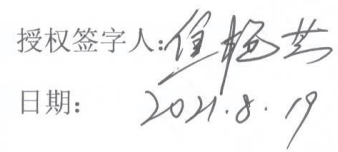 授权签字人:
日期: 2021.8.19